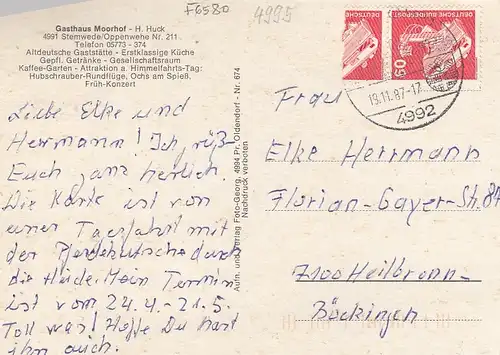 F6580
4995
Gasthaus Moorhof - H. Huck
4991 Stemwede/Oppenwehe Nr. 211
Telefon 05773 - 374
Altdeutsche Gaststätte - Erstklassige Küche
Gepfl. Getränke - Gesellschaftsraum
Kaffee-Garten - Attraktion a. Himmelfahrts-Tag:
Hubschrauber-Rundflüge, Ochs am Spieß,
Früh-Konzert
Liebe Elke und
Hermann! Ich grüß
Euch ganz herlich.
Die Karte ist von
einer Tagesfahrt mit
der Pferdekutsche durch
die Heide. Mein Termin
ist vom 24.4.-21.5.
Toll was! Hoffe Du hast
ihn auch.
Aufn. und Verlag Foto-Georg, 4994 Pr. Oldendorf - Nr. 674
Nachdruck verboten
60
19.11.87-17
4992
Frau
Elke Herrmann
Florian-Gayer-Str. 87
7100 Heilbronn-
Böckingen